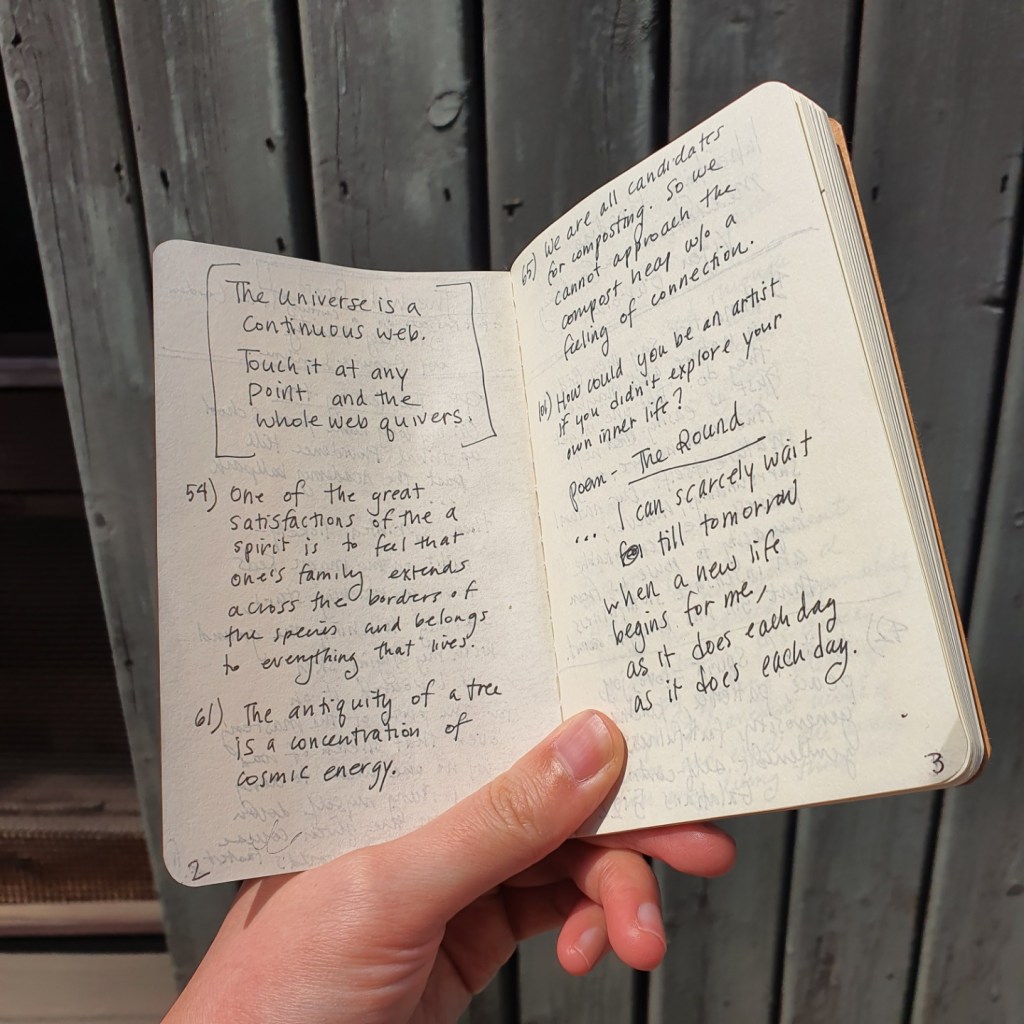 The universe is a
continuous web.
Touch it at any
point and the
whole web quivers.
54) One of the great
satisfactions of the a
spirit is to feel that
one's family extends
across the borders of
the species and belongs
to everything that lives.
61) The antiquity of a tree
is a concentration of
cosmic energy.
2
65) We are all candidates
for composting. So we
cannot approach the
compost heap w/o a
feeling of connection.
101) How could you be an artist
if you didn't explore your
own inner life?
poem - The Round
I can scarcely wait
... till tomorrow
when a new life
begins for me,
as it does each day
as it does each day.
3